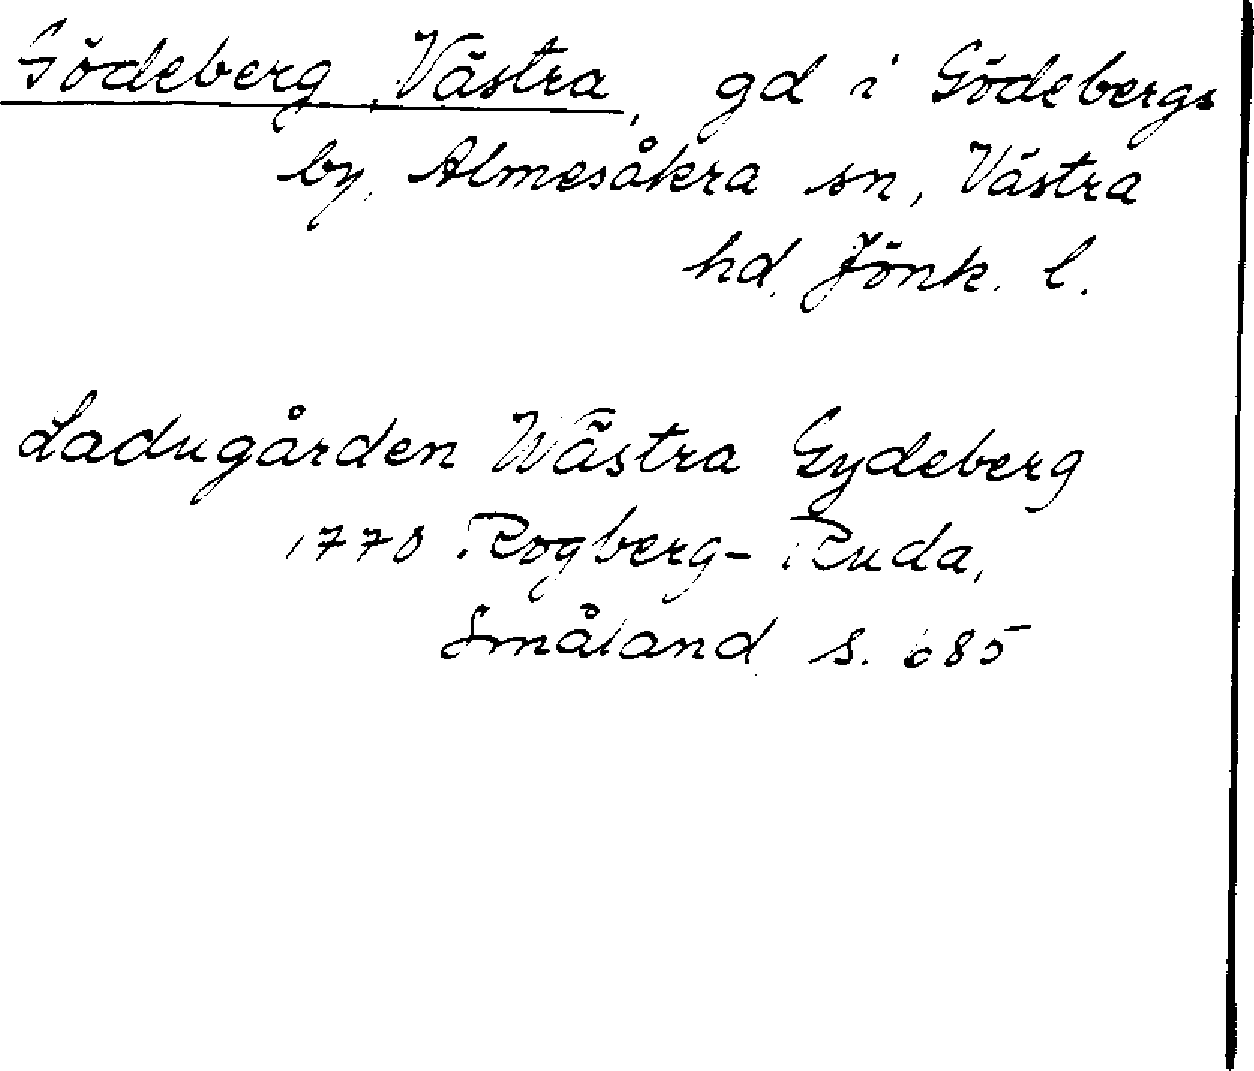 Gödeberg, Västra, gd i Gödebergs
by, Almesåkra sn, Västra
hd, Jönk. l.
Ladugården Wästra Gydeberg
1770 Rogberg-Ruda,
Småland s. 685